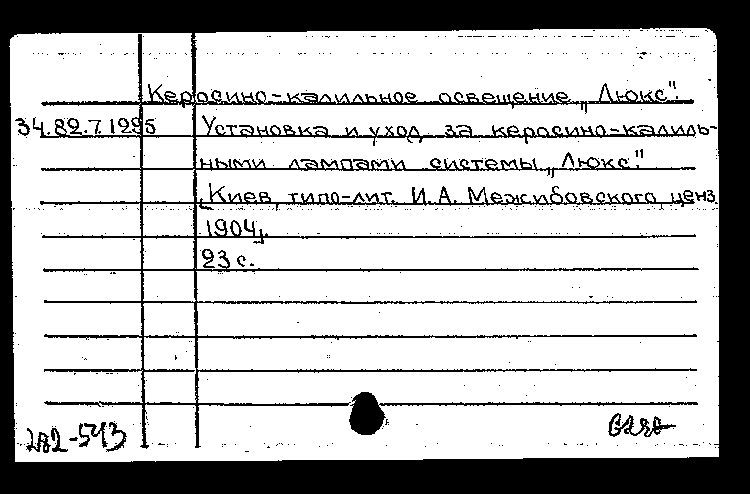 Керосино-калильное освещение „Люкс".
34.82.7.1295 Установка и уход за керосино-калиль-
ными лампами системы „Люкс."
[Киев, типо-лит. И. А. Межибовского, ценз.
1904].
23 с.
282-543